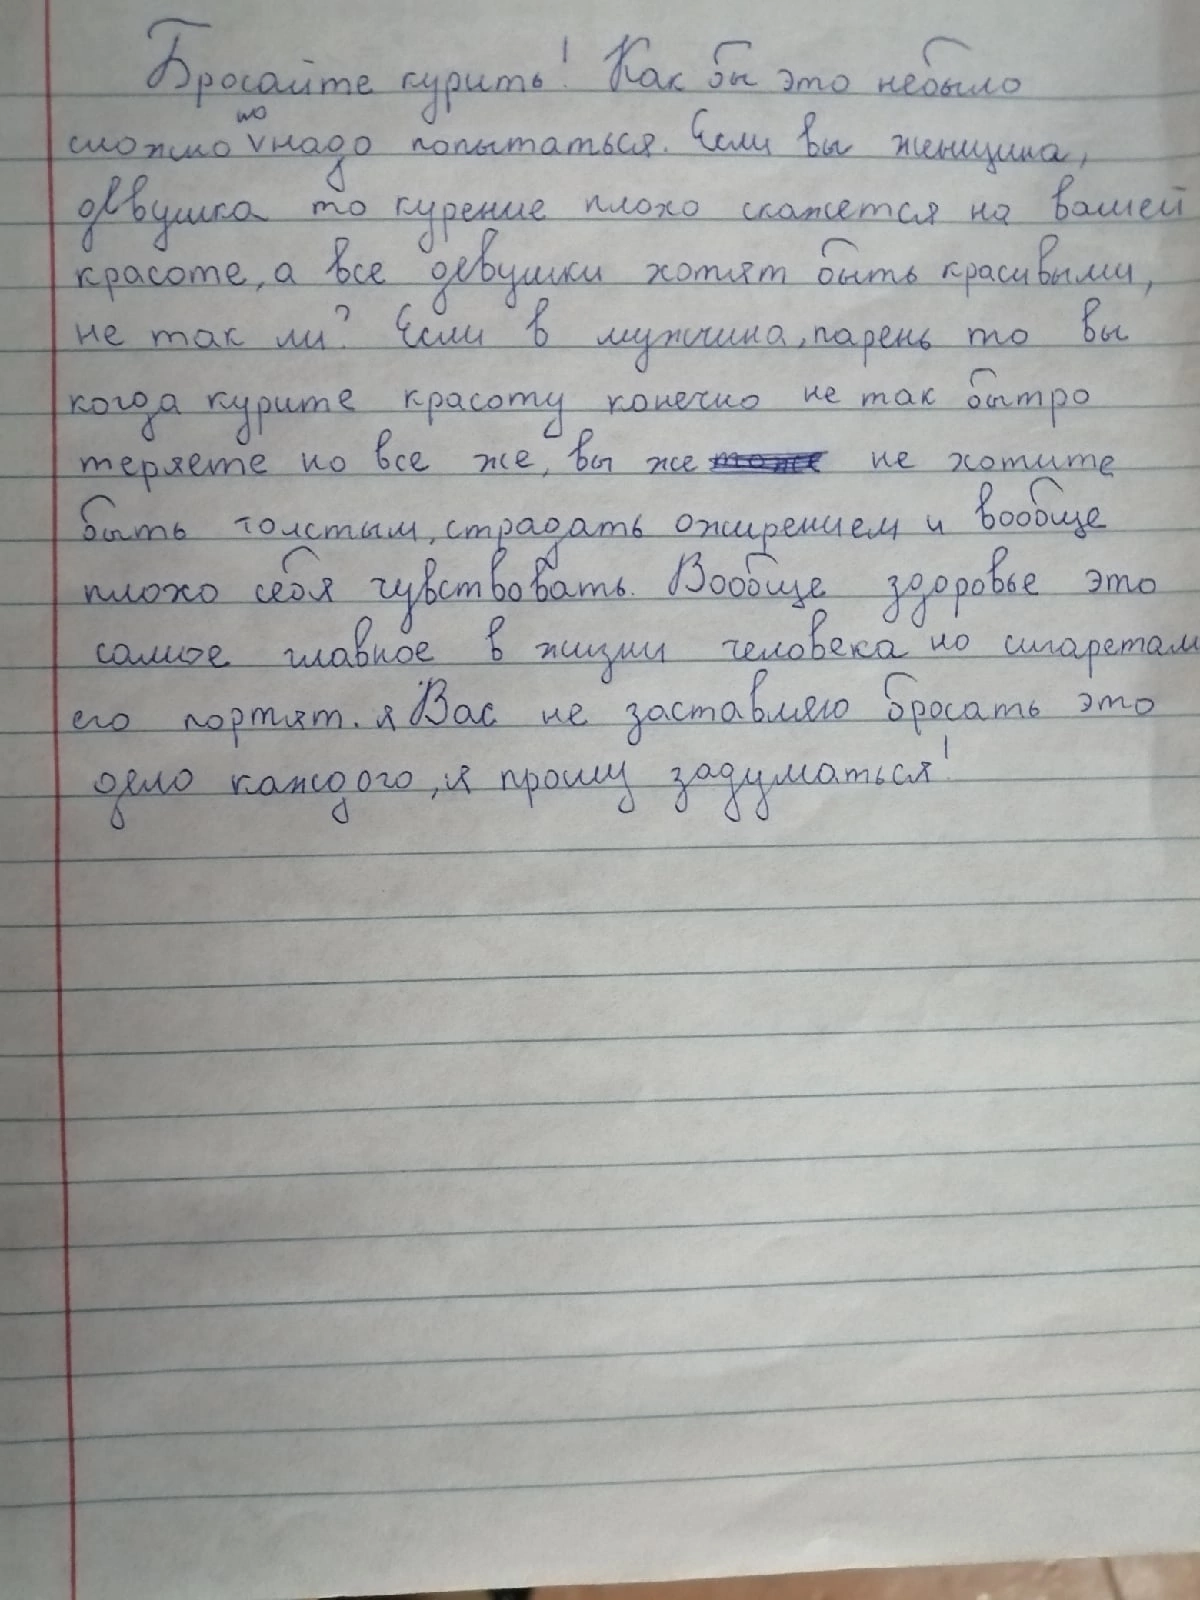 Бросайте курить! Как бы это небыло
сложно но надо попытаться. Если вы женщина,
девушка то курение плохо скажется на вашей
красоте, а все девушки хотят быть красивыми,
не так ли? Если в мужчина, парень то вы
когда курите красоту конечно не так бытро
теряете но все же, вы же не хотите
быть толстым, страдать ожирением и вообще
плохо себя чувствовать. Вообще здоровье это
самое главное в жизни человека но сигаретам
его портят. я Вас не заставляю бросать это
дело каждого, я прошу задуматься!